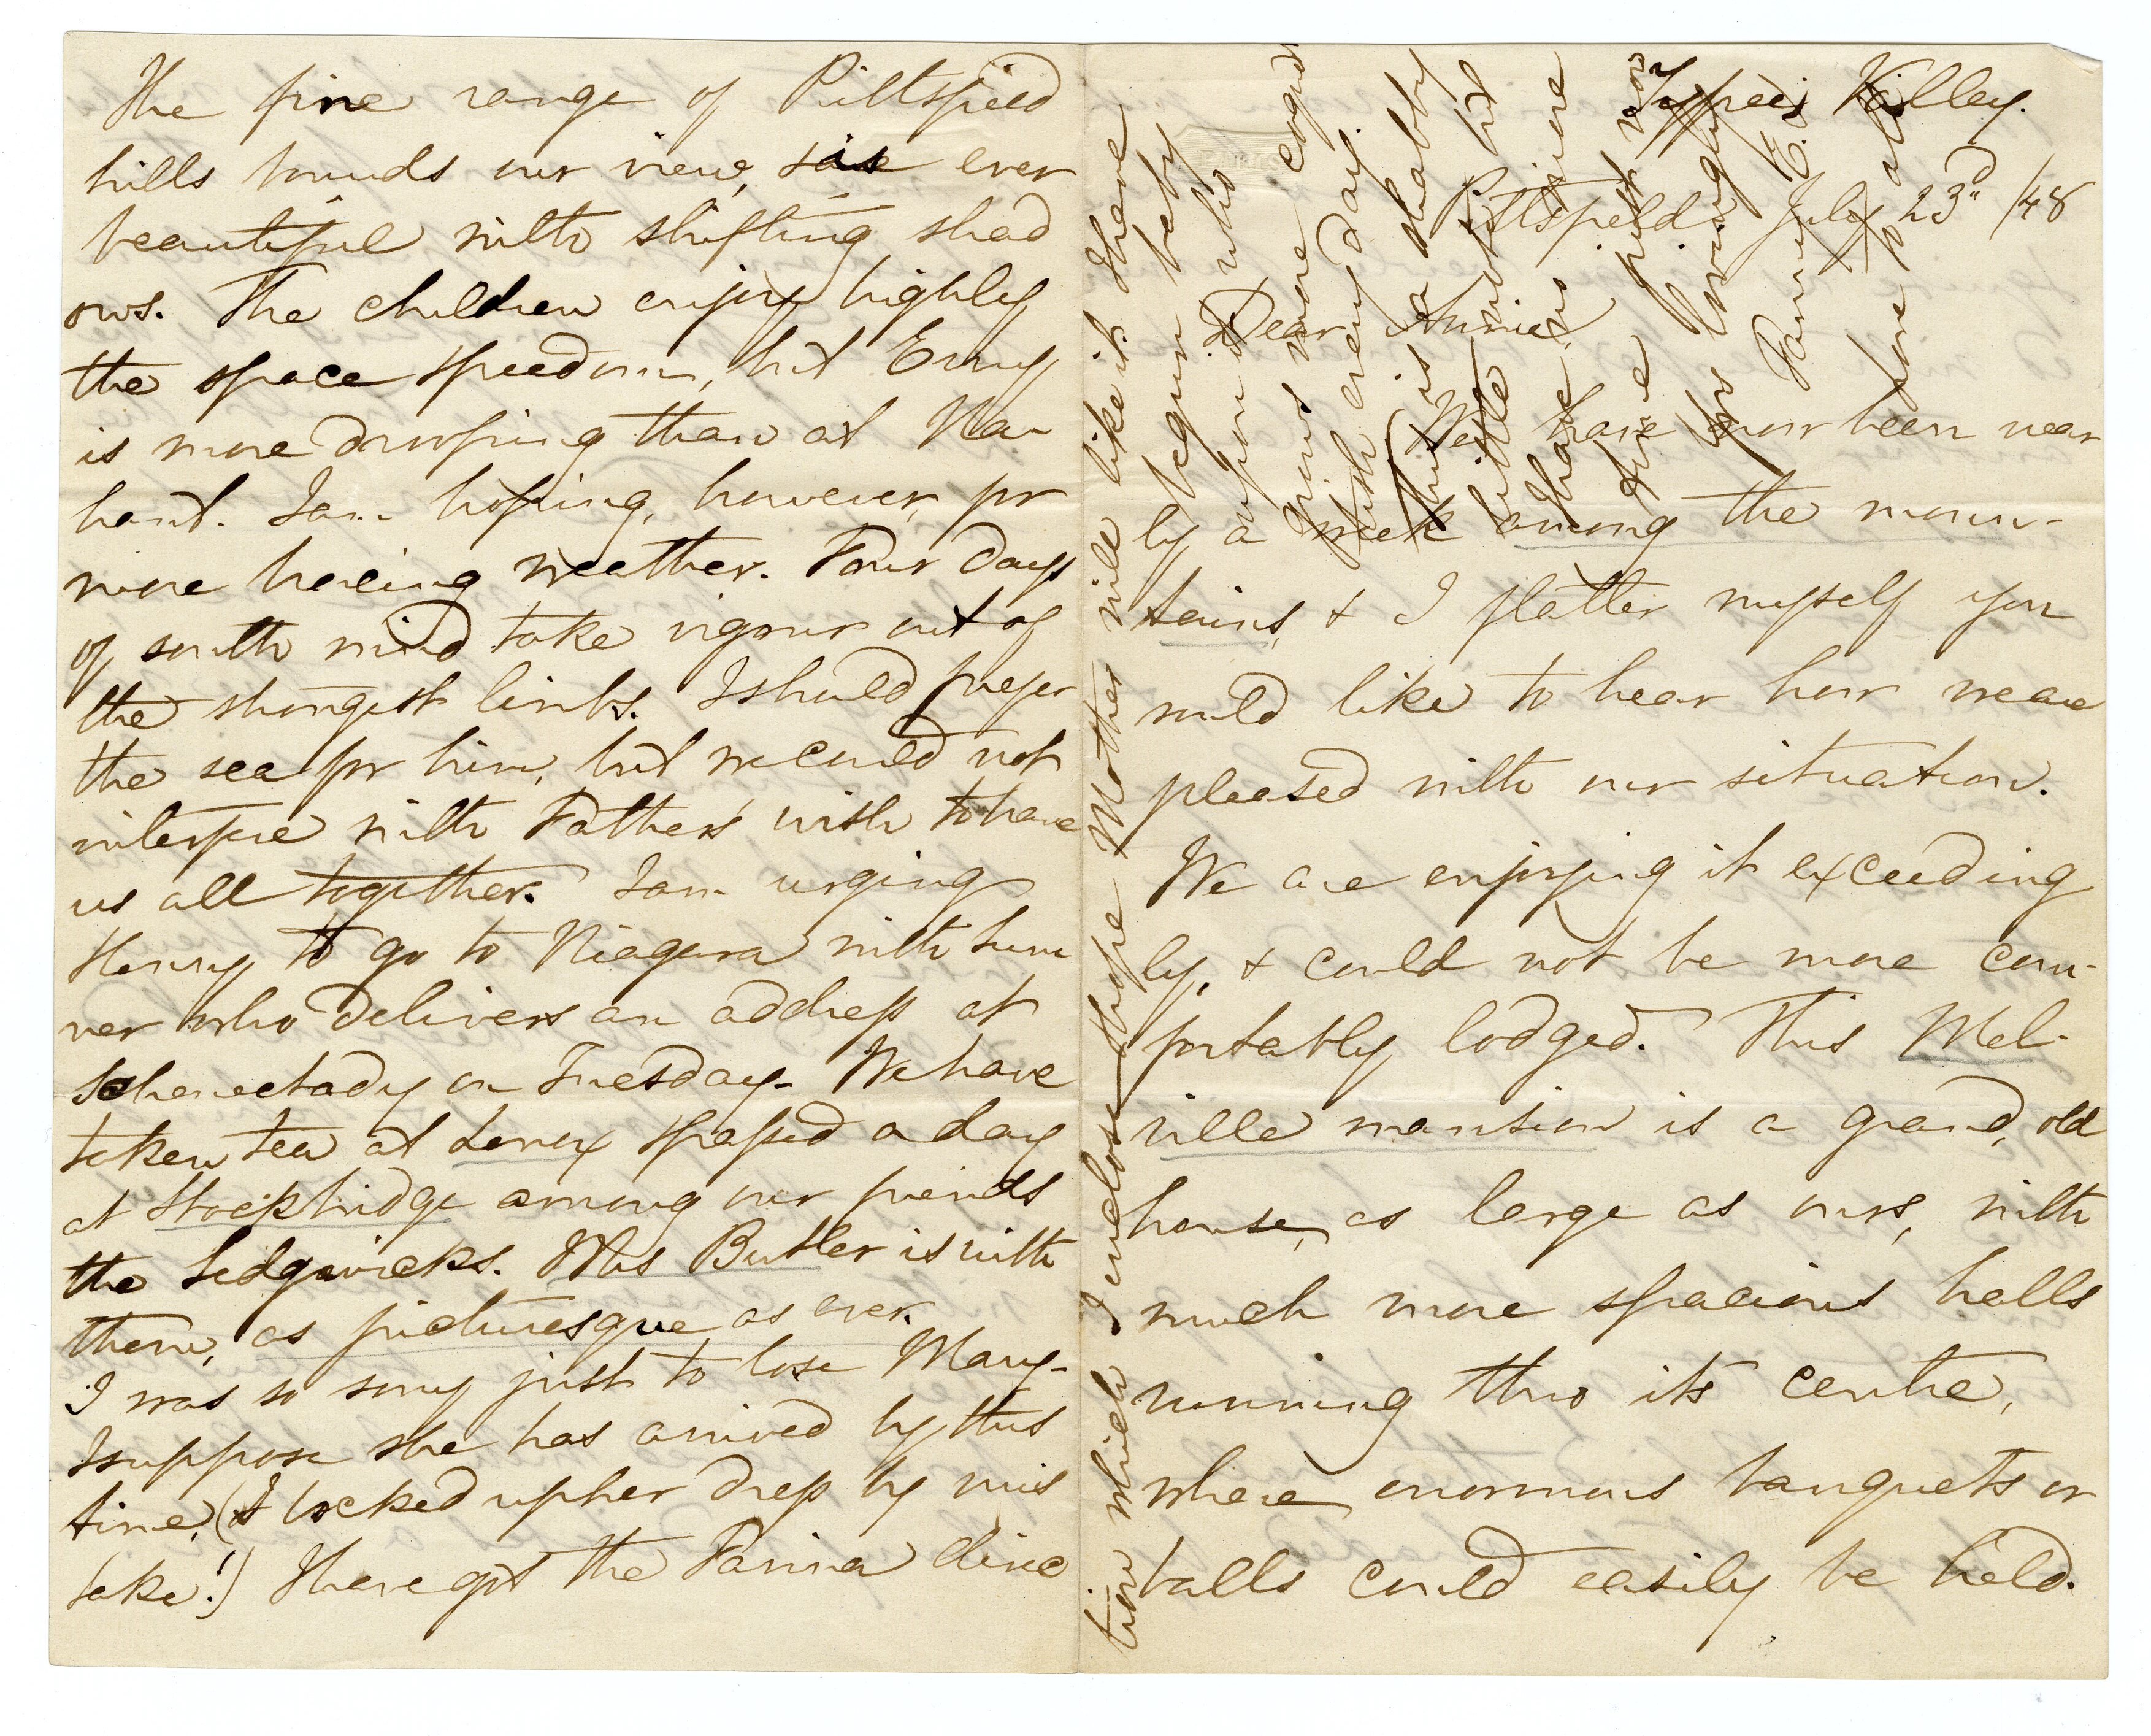 Typee Valley.
Pittsfield July 23d /48
Dear Annie
We have now been near
ly a week among the moun-
tains, & I flatter myself you
wild like to hear how we are
pleased with our situation.
We are enjoying it exceeding
ly, & could not be more com-
fortably lodged. This Mel-
ville mansion is a grand, old
house, as large as ours, with
much more spacious halls
running thro its centre,
where enormous banquets or
balls could easily be held.
The fine range of Pittsfield
hills bounds our view, ever
beautiful with shifting shad
ows. The children enjoy highly
the space & freedom, but Erny
is more drooping than at Na-
hant. I am hoping, however, for
more bracing weather. Four days
of south wind take vigour out of
the strongest limbs. I should prefer
the sea for him, but we could not
interfere with Father's wish to have
us all together. I am urging
Henry to go to Niagara with Sum
ner who delivers an address at
Schenectady on Tuesday. We have
taken tea at Lenox & passed a day
at Stockbridge among our friends
the Sedgwicks. Mrs Butler is with
them, as picturesque as ever.
I was so sorry just to lose Mary.
I suppose she has arrived by this
time. (I locked up her dress by mis
take!) I have got the Farina direc
tion which I enclose & hope Mother will like it. I have
begun baby
upon it who
grows more & more cogni
sh every day.
This is a shabby
little note, but
I have no more
time just now
for writing.
Fanny E.